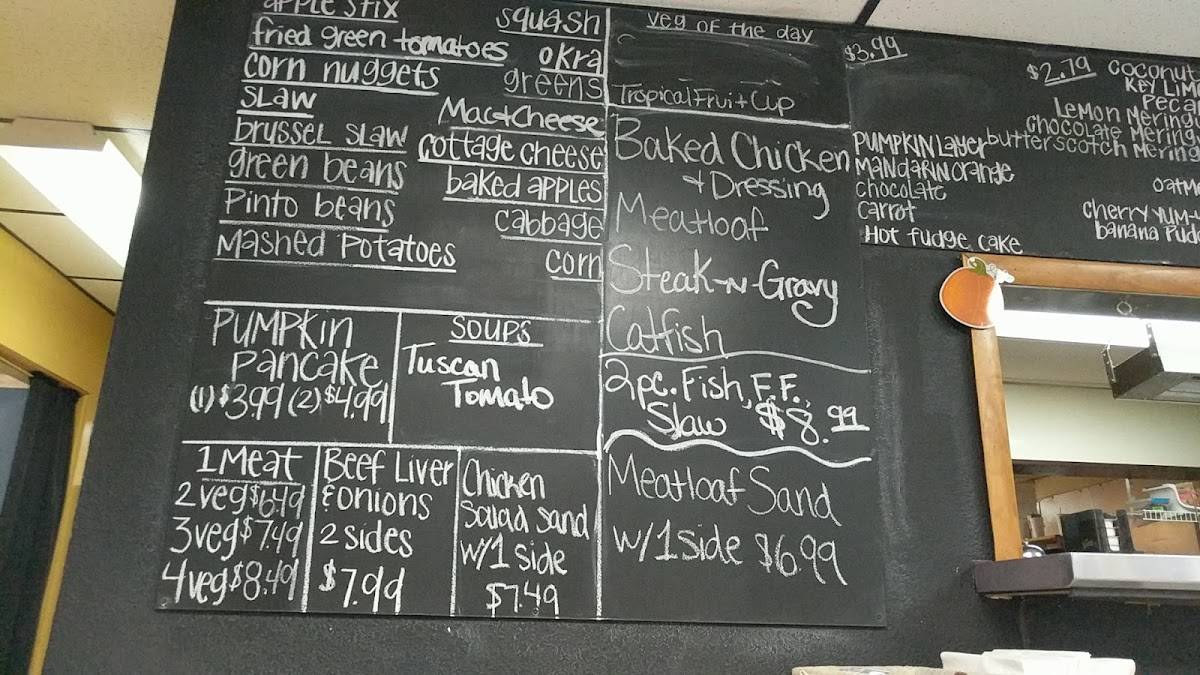 apple stix
fried green tomatoes
corn nuggets
slaw
brussel slaw
green beans
Pinto beans
Mashed Potatoes
squash
okra
greens
Mac+Cheese
cottage cheese
baked apples
cabbage
corn
PUMPKIN
Pancake
(1) $3.99 (2) $4.99
SOUPS
Tuscan
Tomato
1 Meat
2 veg $6.49
3 veg $7.49
4 veg $8.49
Beef Liver
& onions
2 sides
$7.99
Chicken
Salad Sand
w/1 side
$7.49
Veg of the day
Tropical Fruit Cup
Baked Chicken
+ Dressing
Meatloaf
Steak-N-Gravy
Catfish
2 pc. Fish, F.F.,
Slaw $8.99
Meatloaf Sand
w/1 side $6.99
$3.99
PUMPKIN Layer
MANdARIN orange
chocolate
carrot
Hot fudge cake
$2.79
Coconut
Key Lim
Peca
Lemon Mering
Chocolate Mering
butterscotch Mering
Oatm
Cherry YUM-
banana Pudd